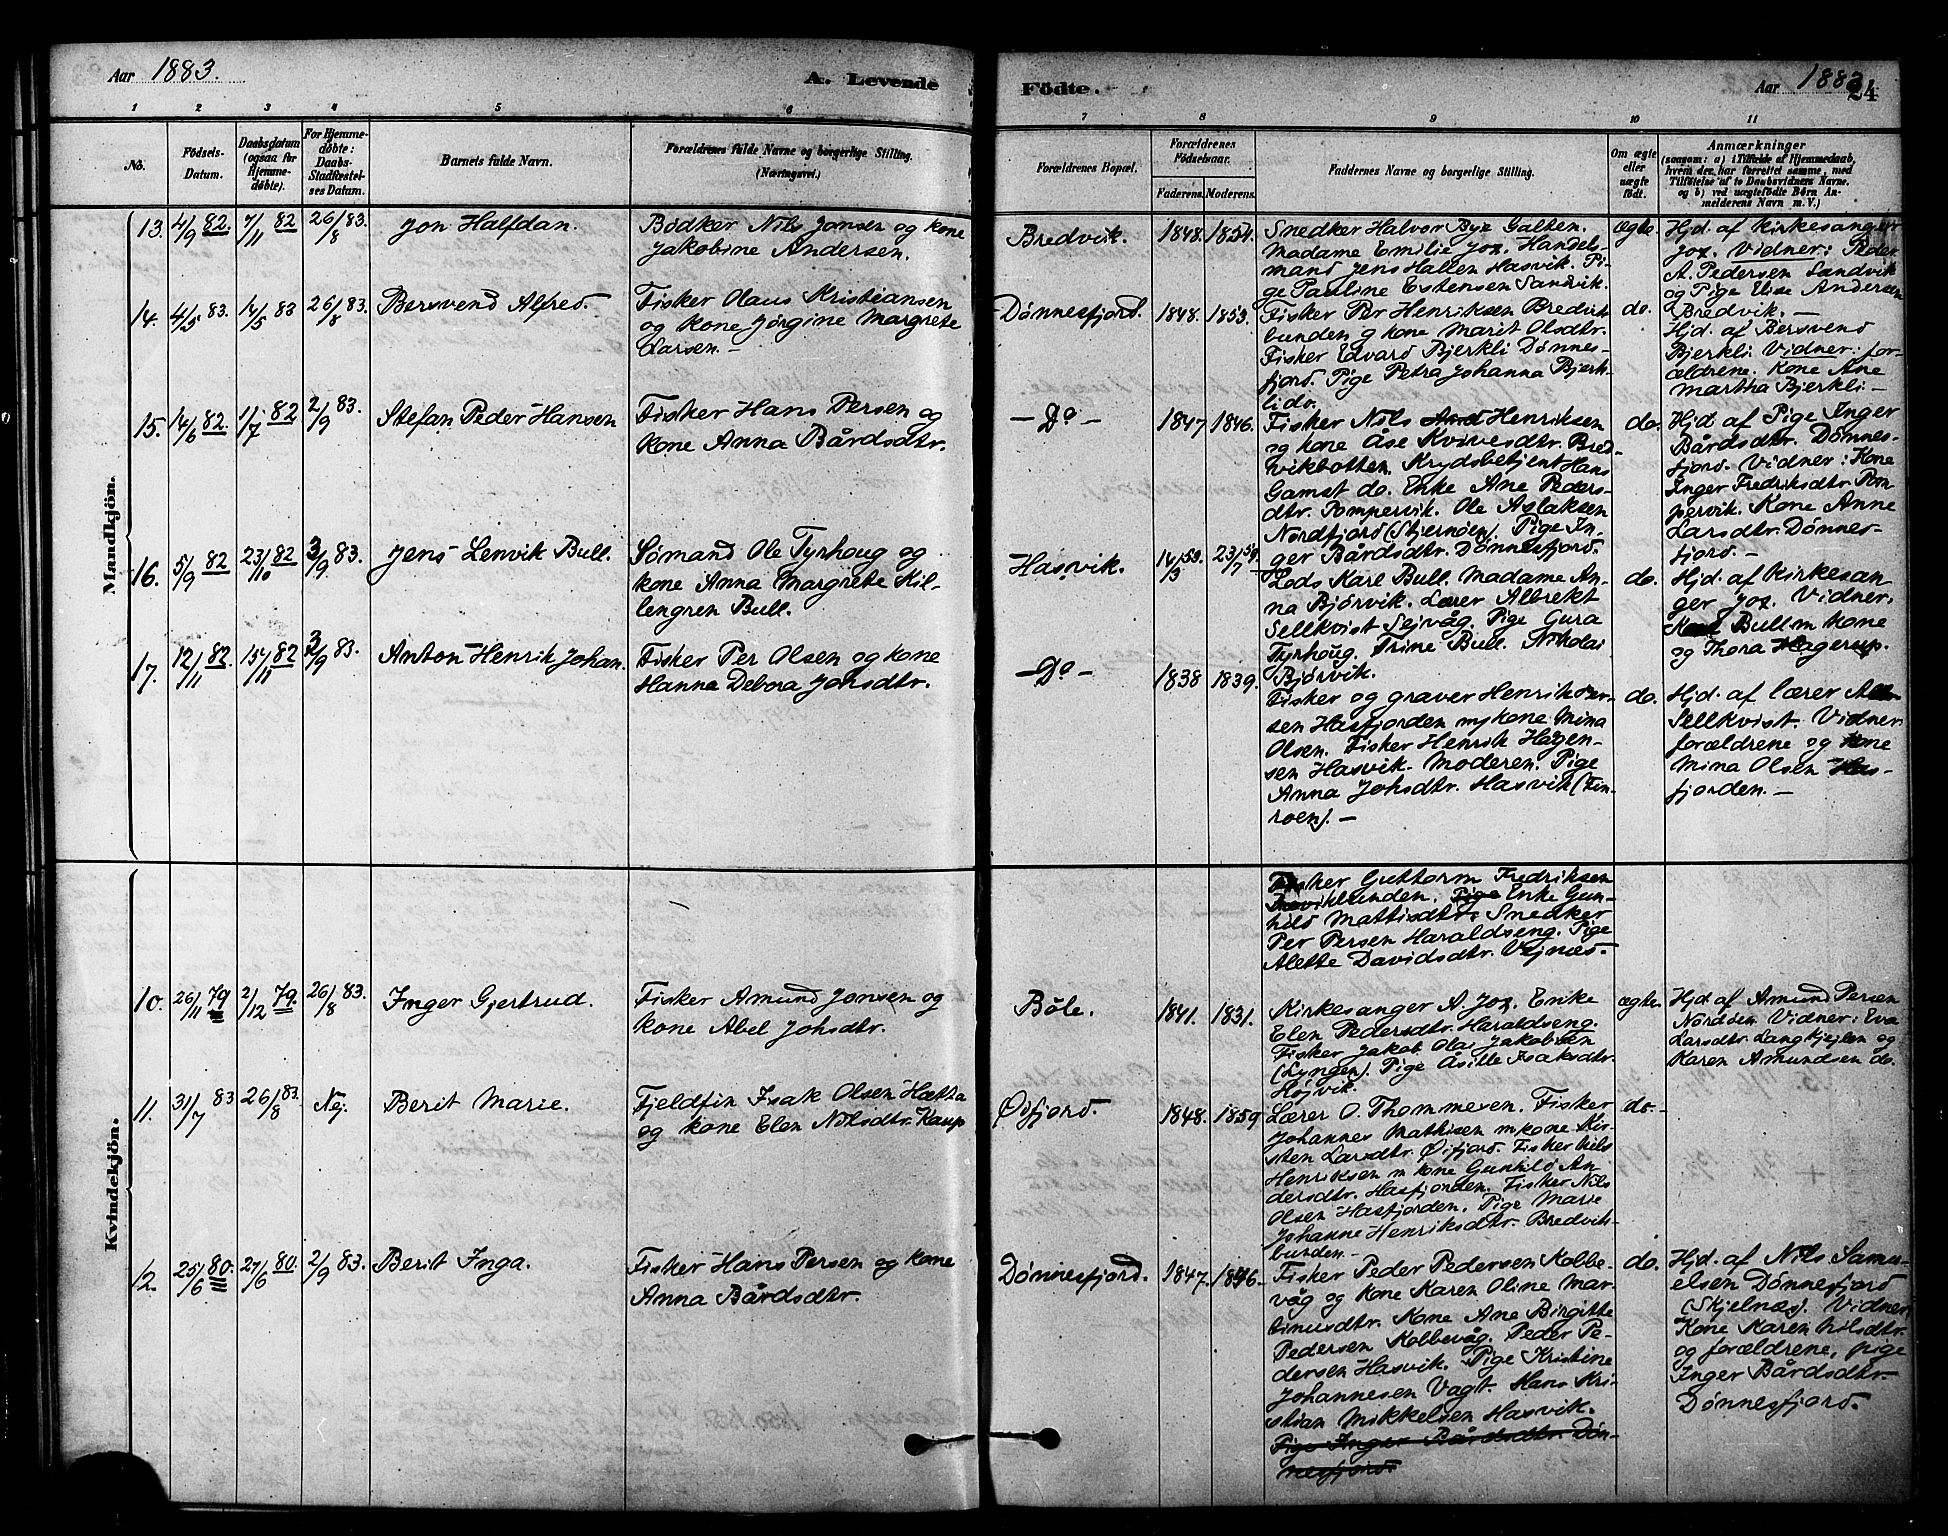 Aar 1883.
A. Levende
Födte.
Aar 1883
24
1 2 3 4 5 6 7 8 9 10 11
No.
Födsels-
Datum.
Daabsdatum
(ogsaa for
Hjemme-
döbte).
For Hjemme-
döbte:
Daabs-
Stadfæstel-
ses Datum.
Barnets fulde Navn.
Forældrenes fulde Navne og borgerlige Stilling.
(Næringsvei.)
Forældrenes Bopæl.
Forældrenes
Födselsaar.
Faderens. Moderens.
Faddernes Navne og borgerlige Stilling.
Om ægte
eller
uægte
födt.
Anmærkninger
(saasom: a) i Tilfælde af Hjemmedaab,
hvem der har forrettet samme, med
Tilföielse af to Daabsvidners Navne,
og b) ved uægtefödte Börn An-
melderens Navn m. V.)
Mandkjön.
13. 4/9 82. 7/11 82 26/8 83. Jon Halfdan.
Bødker Nils Jonsen og kone
Jakobine Andersen.
Bredvik. 1848. 1854.
Snedker Halvor Bye Galten.
Madame Emilie Jox. Handels-
mand Jens Hallen Hasvik. Pi-
ge Pauline Estensen Sandvik.
ægte.
Hjd. af Kirkesanger
Jox. Vidner: Peder
A. Pedersen Sandvik
og Pige Elise Andersen
Bredvik. —
14. 4/5 83. 14/5 83 26/8 83. Bersvend Alfred.
Fisker Olaus Kristiansen
og kone Jørgine Margrete
Larsen. —
Dønnesfjord. 1848. 1853.
Fisker Per Henriksen Bredvik
bunden g kone Marit Olsdtr.
Fisker Edvard Bjerkli Dønnes-
fjord. Pige Petra Johanna Bjerk-
li do.
do.
Hjd. af Bersvend
Bjerkli. Vidner: for-
ældrene. Kone Ane
Martha Bjerkli —
15. 14/6 82. 1/7 82 2/9 83. Stefan Peder Hansen
Fisker Hans Persen og
kone Anna Bårdsdtr.
— Do — 1847 1846.
Fisker Nils Henriksen
og kone Åse Kvivesdtr. Bred-
vikbotten. Krydsbetjent Hans
Gamst do. Enke Ane Peders-
dtr. Pompervik. Ole Aslaksen
Nordfjord (Stjernöen). Pige In-
ger Bårdsdtr. Dønnesfjord.
do.
Hjd af Pige Inger
Bårdsdtr. Dønnes-
fjord. Vidner: Kone
Inger Fredriksdtr Pom-
pervik. Kone Anne
Larsdtr. Dønnes-
fjord. —
16. 5/9 82 23/10 82 3/9 83. Jens Lenvik Bull.
Sømand Ole Tyrhoug og
kone Anna Margrete Kil-
lengren Bull.
Hasvik. 14/3 53. 23/7 59.
Lods Karl Bull. Madame An-
na Bjørvik. Lærer Albrekt
Sellkvist Sejvåg. Pige Gura
Tyrhoug. Trine Bull. Nikolai
Bjørvik.
do.
Hjd. af Kirkesan-
ger Jox. Vidner:
Bull m kone
og Thora Hagerup.
17. 12/11 82. 15/11 82 2/9 83. Anton Henrik Johan.
Fisker Per Olsen og kone
Hanna Debora Johsdtr.
— Do — 1838 1839.
Fisker og graver Henrik Per-
sen Hasfjorden m kone Mina
Olsen. Fisker Henrik Hagen-
sen Hasvik. Moderen. Pige
Anna Johsdtr. Hasvik (Fin-
roen). —
do.
Hjd. af lærer
Sellkvist. Vidner
forældrene og kone
Mina Olsen Has-
fjorden. —
Kvindekjön.
Fisker Guttorm Fredriksen
Enke Gun-
hild Mattisdtr. Snedker
Per Persen Haraldseng. Pige
Alette Davidsdtr. Vejnæs.
10. 26/11 79 2/12 79. 26/8 83. Inger Gjertrud.
Fisker Amund Jonsen og
kone Abel Johsdtr.
Bôle. 1841. 1831.
Kirkesanger A. Jox. Enke
Elen Pedersdtr. Haraldseng.
Fisker Jakob Olas Jakobsen
(Lyngen). Pige Åsille Isaksdtr.
Højvik.
ægte.
Hjd af Amund Persen
Nordsen Vidner: Eva
Larsdtr. Langkjejlen og
Karen Amundsen do.
11. 31/7 83 26/8 83. Nej. Berit Marie.
Fjeldfin Isak Olsen Hætta
og kone Elen Nilsdtr. Kaup
Øifjord. 1848. 1859
Lærer O. Thommesen. Fisker
Johannes Mathisen m kone Kir-
sten Larsdtr. Øifjord. Fisker Nils
Henriksen m kone Gunhild An-
dersdtr. Hasfjorden. Fisker Nils
Olsen Hasfjorden. Pige Marie
Johanne Henriksdtr. Bredvik-
bunden —
do.
12. 25/6 80. 27/6 80. 2/9 83. Berit Inga.
Fisker Hans Persen og kone
Anna Bårdsdtr.
Dønnesfjord. 1847. 1846.
Fisker Peder Pedersen Kobbe-
våg og kone Karen Oline Mar-
tinusdtr. Kone Ane Birgitte
Pedersen Kobbevåg. Peder Pe-
dersen Hasvik. Pige Kristine
Johannesen Vagt. Hans Kri-
stian Mikkelsen Hasvik.
Pige Inger Bårdsdtr. Døn-
nesfjord.
do.
Hjd. af Nils Samu-
elsen Dønnesfjord
(Skjelnæs). Vidner
Kone Karen Nilsdtr.
og forældrene, pige
Inger Bårdsdtr.
Dønnesfjord.